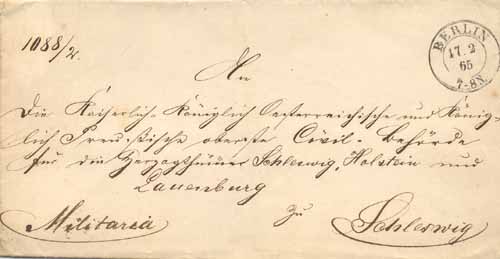 1088/2.
BERLIN
17.2
65
7-8N.
An
Die Kaiserlich-Königlich Oesterreichische und König-
lich Preußische oberste Civil-Behörde
für die Herzogthümer Schleswig, Holstein und
Lauenburg
zu
Militaria
Schleswig